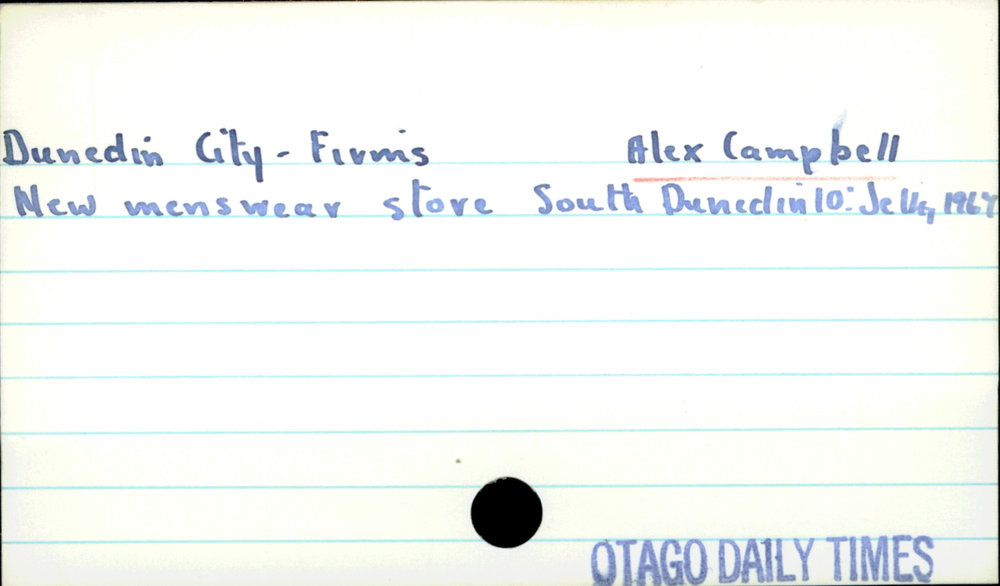 Dunedin City - Firms Alex Campbell
New menswear store South Dunedin 10: July, 1967
OTAGO DAILY TIMES